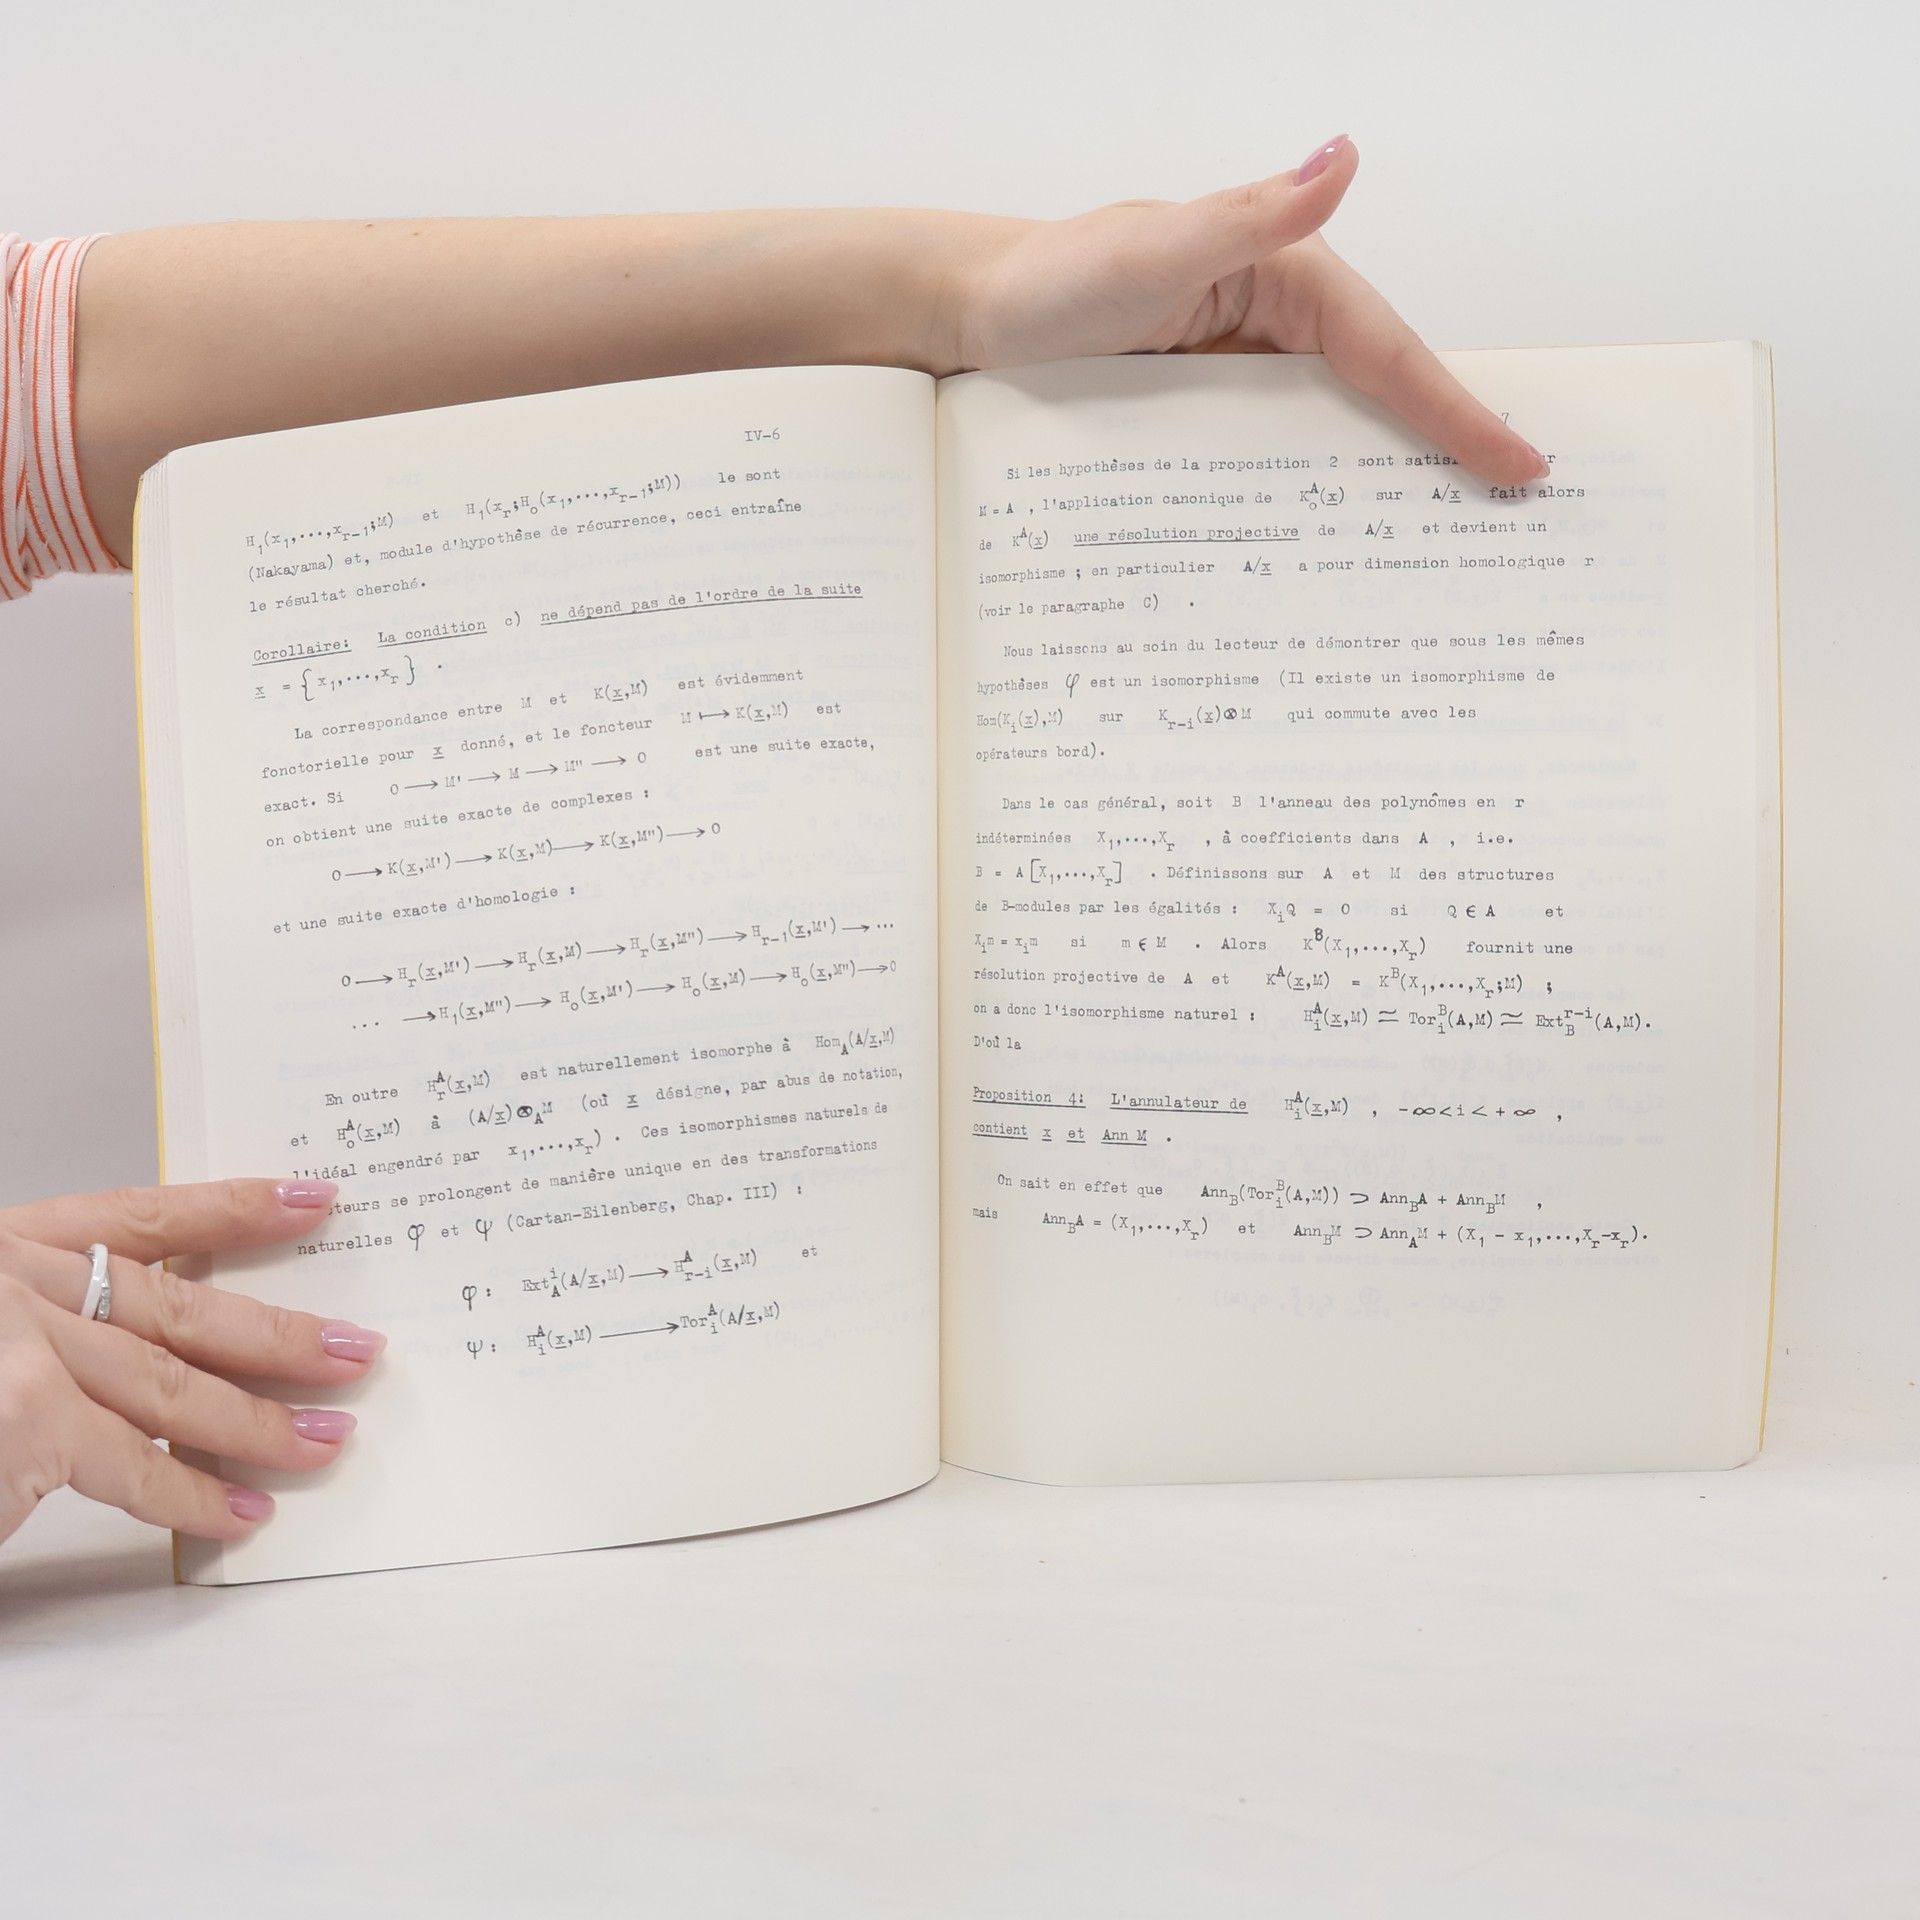 IV-6
H₁(x₁,...,x_{r-1};M) et H₁(x_r;H₀(x₁,...,x_{r-1};M)) le sont
(Nakayama) et, module d'hypothèse de récurrence, ceci entraîne
le résultat cherché.
Corollaire: La condition c) ne dépend pas de l'ordre de la suite
x = {x₁,...,x_r} .
La correspondance entre M et K(x,M) est évidemment
fonctorielle pour x donné, et le foncteur M ↦ K(x,M) est
exact. Si 0 ⟶ M' ⟶ M ⟶ M" ⟶ 0 est une suite exacte,
on obtient une suite exacte de complexes :
0 ⟶ K(x,M') ⟶ K(x,M) ⟶ K(x,M") ⟶ 0
et une suite exacte d'homologie :
0 ⟶ H_r(x,M') ⟶ H_r(x,M) ⟶ H_r(x,M") ⟶ H_{r-1}(x,M') ⟶ ...
... ⟶ H₁(x,M") ⟶ H₀(x,M') ⟶ H₀(x,M) ⟶ H₀(x,M") ⟶ 0
En outre H_r^A(x,M) est naturellement isomorphe à Hom_A(A/x,M)
et H₀^A(x,M) à (A/x)⊗_A M (où x désigne, par abus de notation,
l'idéal engendré par x₁,...,x_r) . Ces isomorphismes naturels de
teurs se prolongent de manière unique en des transformations
naturelles φ et ψ (Cartan-Eilenberg, Chap. III) :
φ : Ext_A^i(A/x,M) ⟶ H_{r-i}^A(x,M) et
ψ : H_i^A(x,M) ⟶ Tor_i^A(A/x,M)
7
Si les hypothèses de la proposition 2 sont
M = A , l'application canonique de K₀^A(x) sur A/x fait alors
de K^A(x) une résolution projective de A/x et devient un
isomorphisme ; en particulier A/x a pour dimension homologique r
(voir le paragraphe C) .
Nous laissons au soin du lecteur de démontrer que sous les mêmes
hypothèses φ est un isomorphisme (Il existe un isomorphisme de
Hom(K_i(x),M) sur K_{r-i}(x)⊗M qui commute avec les
opérateurs bord).
Dans le cas général, soit B l'anneau des polynômes en r
indéterminées X₁,...,X_r , à coefficients dans A , i.e.
B = A[X₁,...,X_r] . Définissons sur A et M des structures
de B-modules par les égalités : X_iQ = 0 si Q ∈ A et
X_im = x_im si m ∈ M . Alors K^B(X₁,...,X_r) fournit une
résolution projective de A et K^A(x,M) = K^B(X₁,...,X_r;M) ;
on a donc l'isomorphisme naturel : H_i^A(x,M) ≃ Tor_i^B(A,M) ≃ Ext_B^{r-i}(A,M).
D'où la
Proposition 4: L'annulateur de H_i^A(x,M) , -∞ < i < +∞ ,
contient x et Ann M .
On sait en effet que Ann_B(Tor_i^B(A,M)) ⊃ Ann_BA + Ann_BM ,
mais Ann_BA = (X₁,...,X_r) et Ann_BM ⊃ Ann_AM + (X₁ - x₁,...,X_r-x_r).